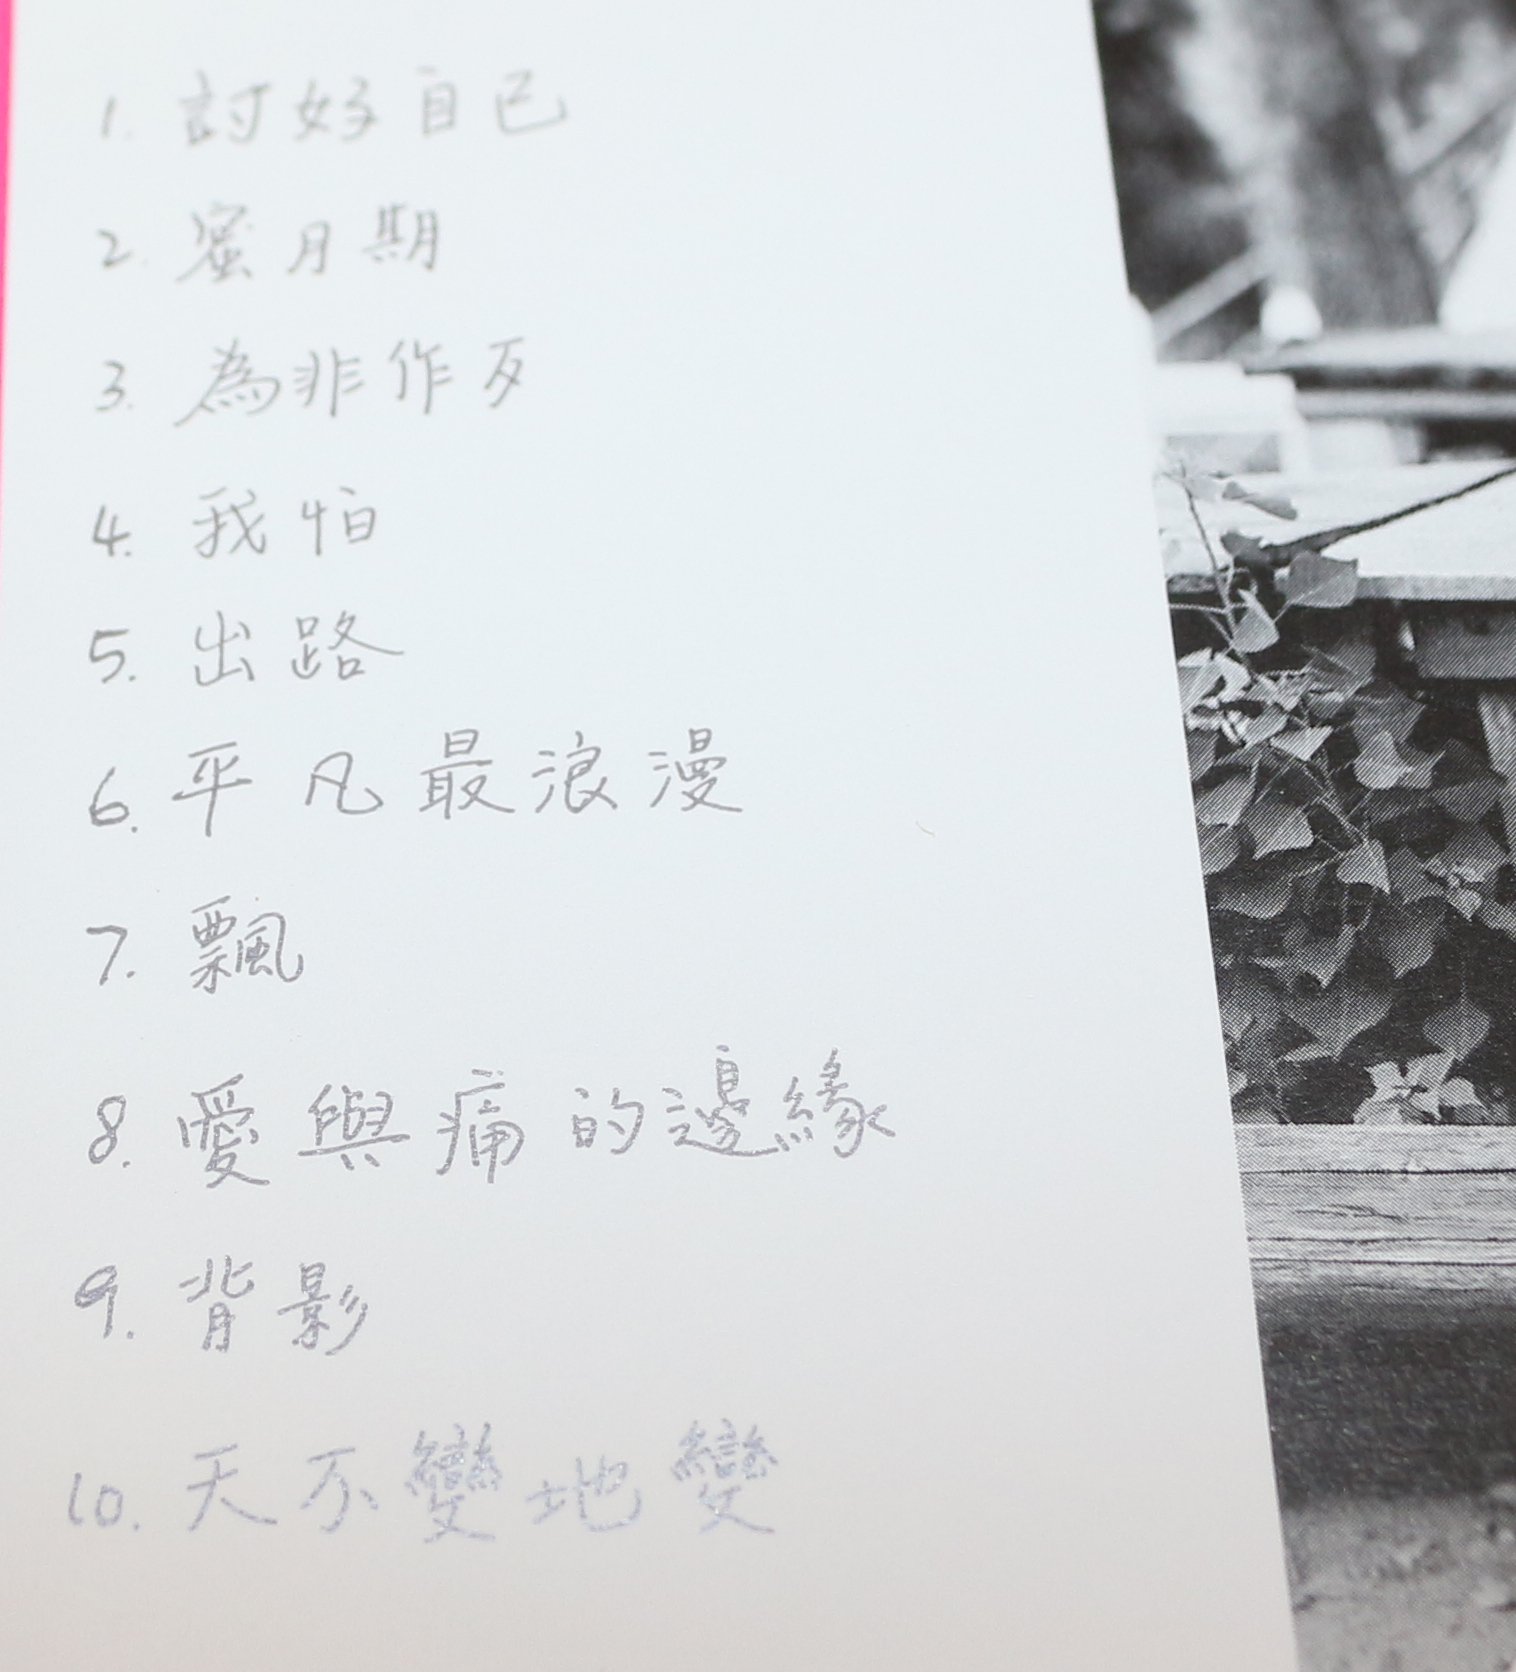 1. 討好自己
2. 蜜月期
3. 為非作歹
4. 我怕
5. 出路
6. 平凡最浪漫
7. 飄
8. 愛與痛的邊緣
9. 背影
10. 天不變地變